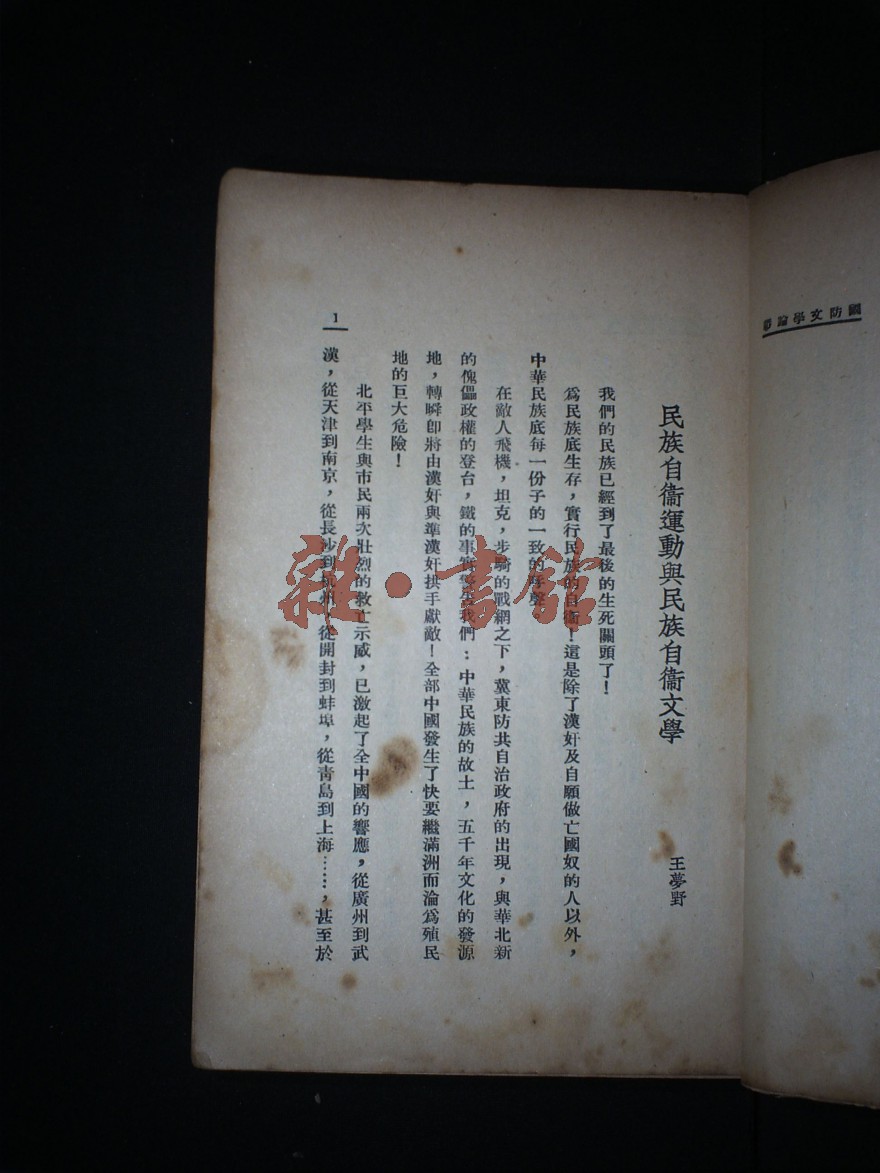 國防文學論
民族自衞運動與民族自衞文學
王夢野
我們的民族已經到了最後的生死關頭了！
爲民族底生存，實行民族的自衞！這是除了漢奸及自願做亡國奴的人以外，
中華民族底每一份子的一致的呼聲。
在敵人飛機，坦克，步騎的戰網之下，冀東防共自治政府的出現，與華北新
的傀儡政權的登台，鐵的事實警告我們：中華民族的故土，五千年文化的發源
地，轉瞬即將由漢奸與準漢奸拱手獻敵！全部中國發生了快要繼滿洲而淪爲殖民
地的巨大危險！
北平學生與市民兩次壯烈的救亡示威，已激起了全中國的響應，從廣州到武
漢，從天津到南京，從長沙到杭州，從開封到蚌埠，從青島到上海……，甚至於
1
雜·書館